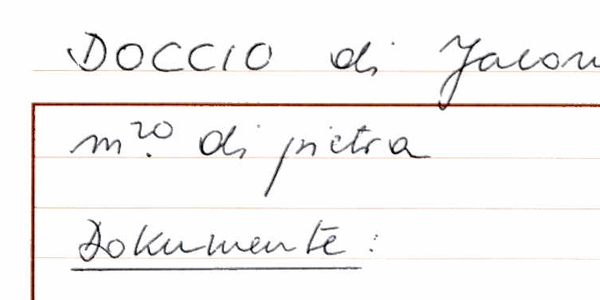 DOCCIO di Jacom
m.ro di pietra
Dokumente: